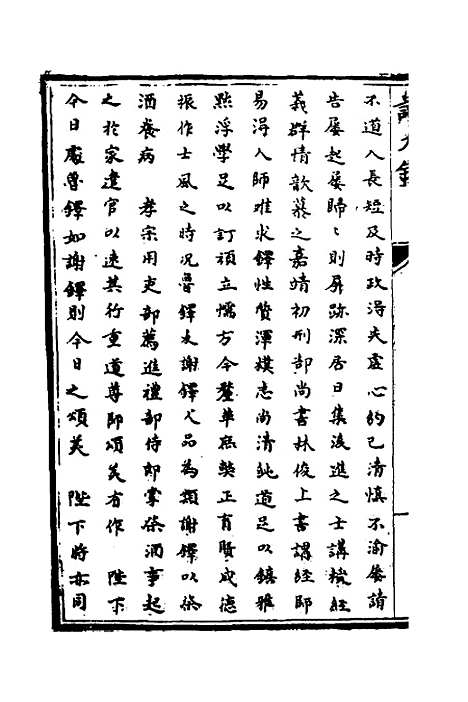 不道人長短及時政淂失虛心約己清慎不渝屡請
告屡起屡歸歸則屏跡深居日集後進之士講授經
義群情歆慕之嘉靖初刑部尚書林俊上書講經師
易淂人師难求鐸性質渾樸志尚清純道足以鎮雅
㸃浮學足以訂頑立懦方今釐革庶獘正育賢成德
振作士風之時况魯鐸太謝鐸人品為類謝鐸以祭
酒養病 孝宗用吏部薦進禮部侍郎掌祭酒事起
之扵家遣官以速其行重道尊師頌美有作 陛下
今日處魯鐸如謝鐸則今日之頌美 陛下時亦同